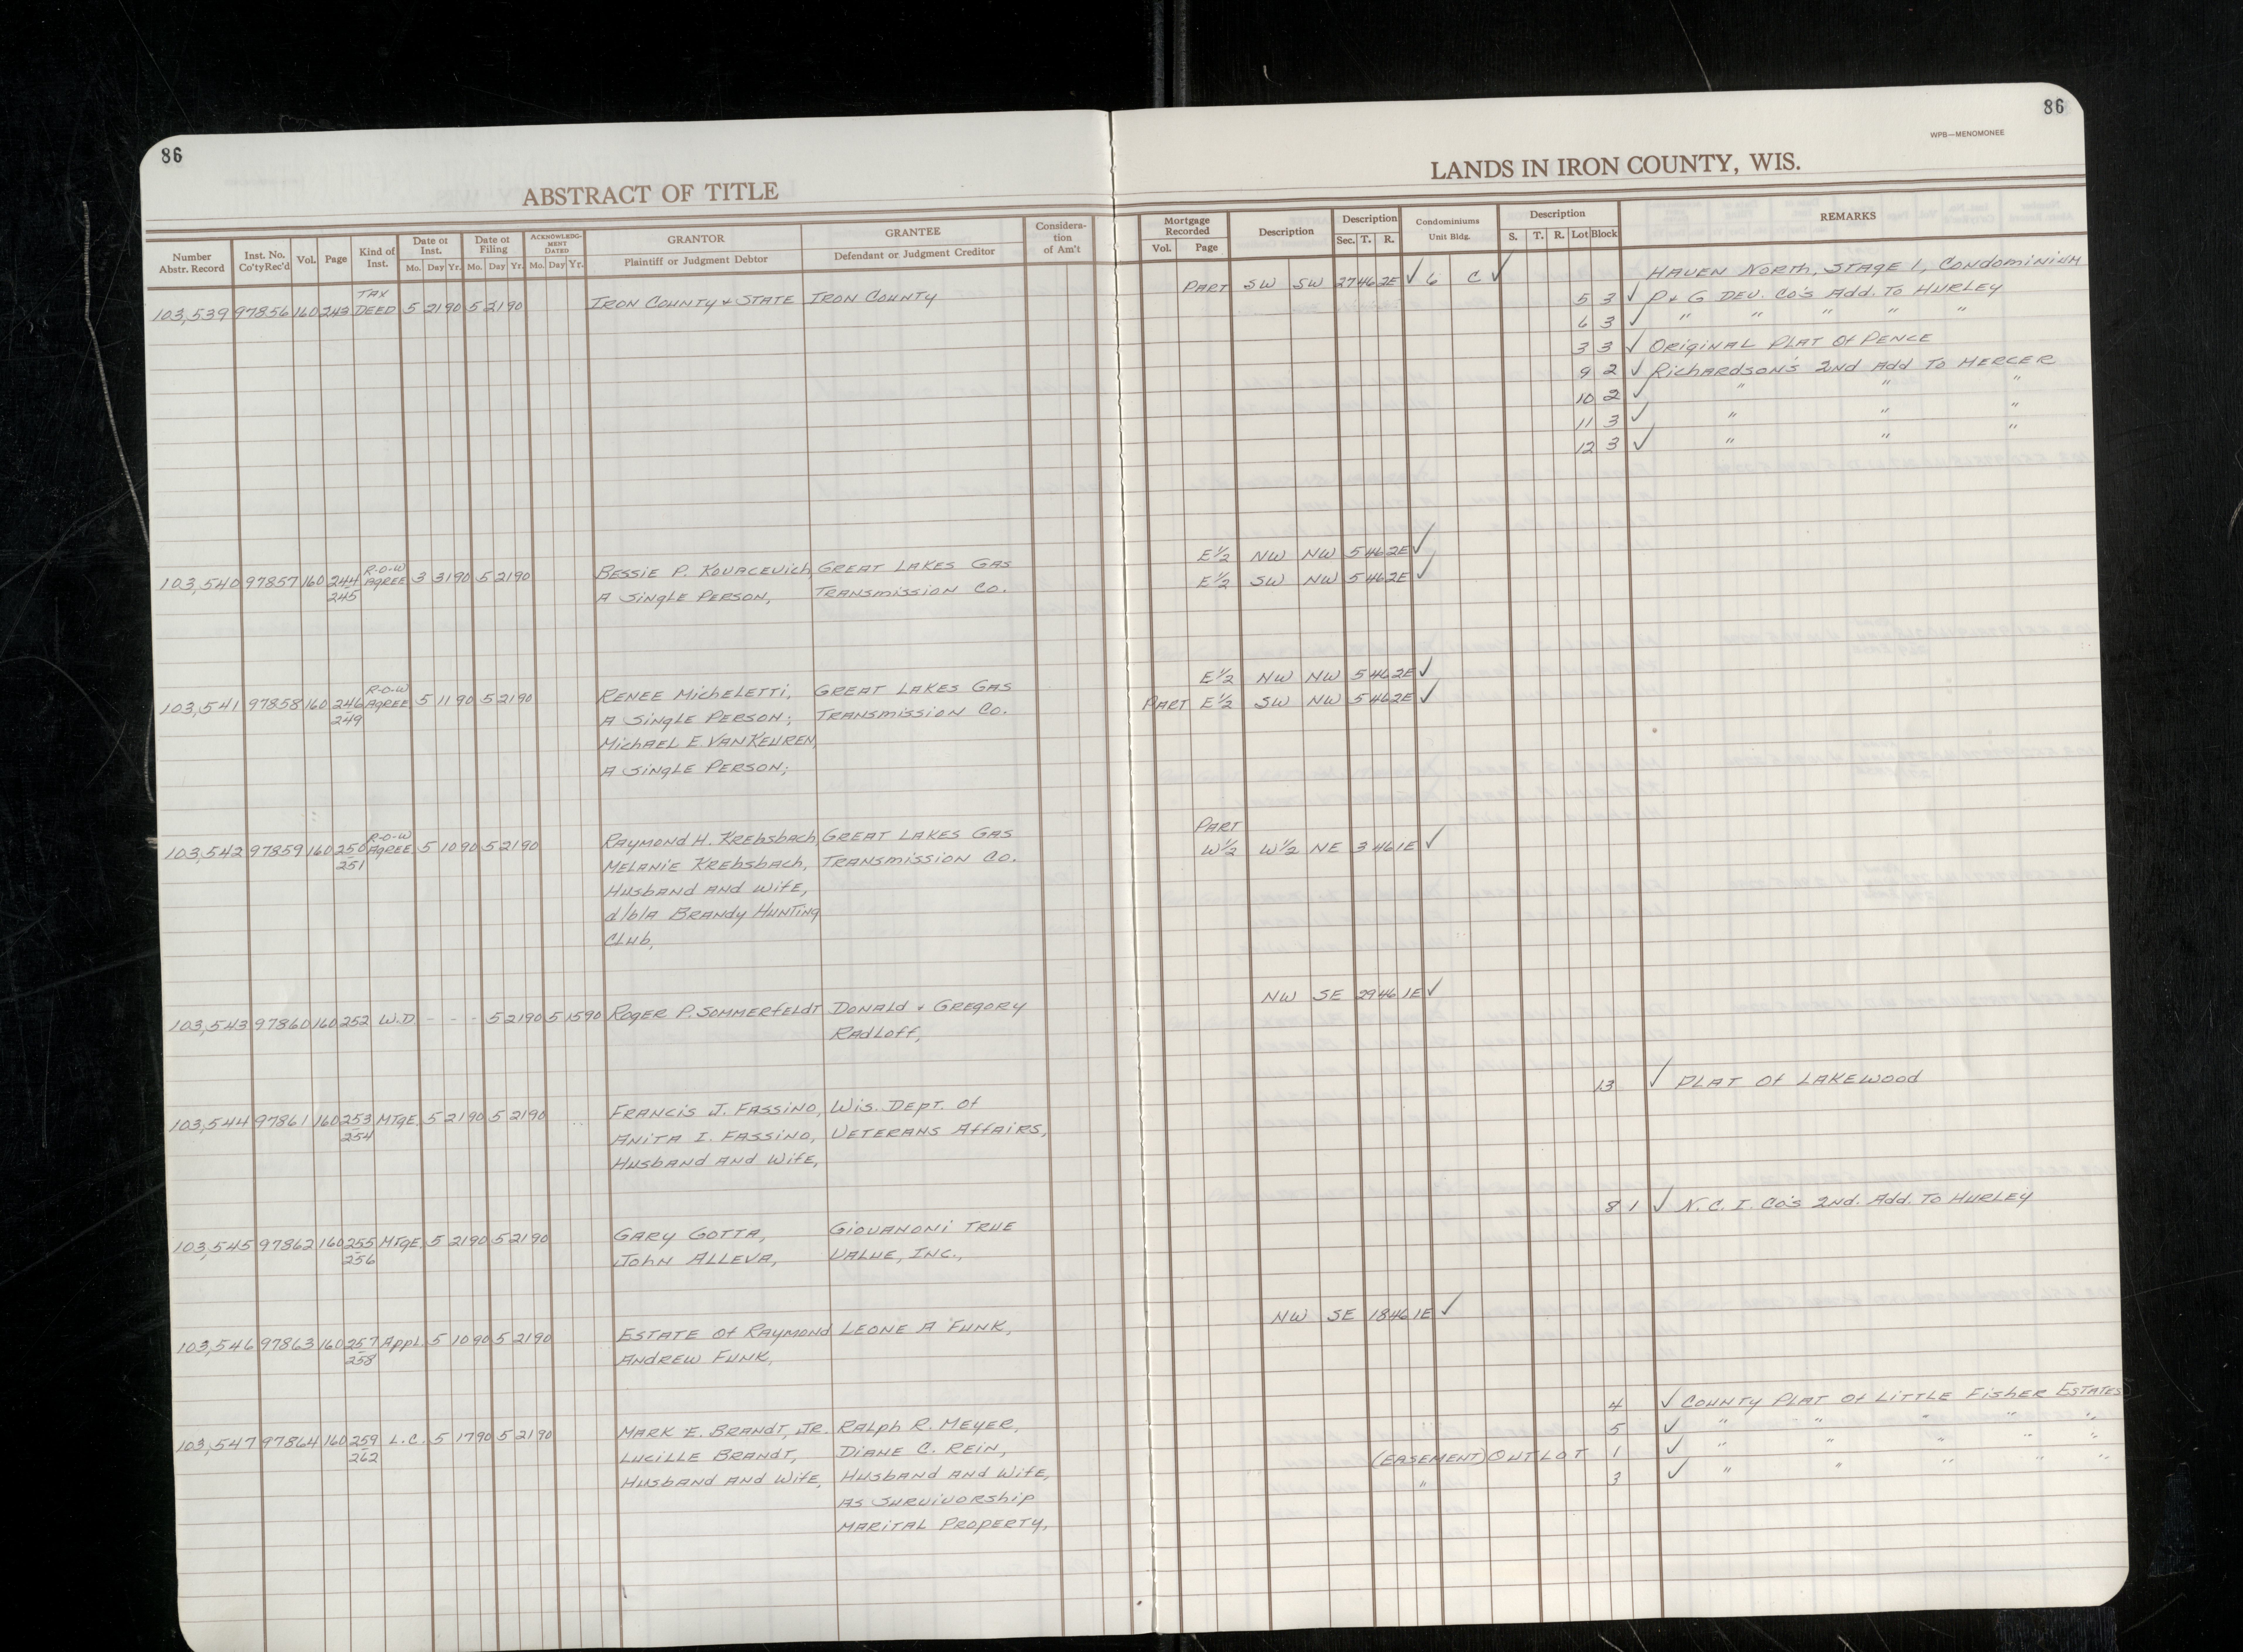 86
ABSTRACT OF TITLE
Number Abstr. Record | Inst. No. Co'ty Rec'd | Vol. | Page | Kind of Inst. | Date of Inst. Mo. Day Yr. | Date of Filing Mo. Day Yr. | ACKNOWLEDGMENT DATED Mo. Day Yr. | GRANTOR Plaintiff or Judgment Debtor | GRANTEE Defendant or Judgment Creditor | Consideration of Am't
TAX
103,539 97856 160 243 DEED 5 21 90 5 21 90 IRON COUNTY & STATE IRON COUNTY
R-O-W
103,540 97857 160 244 AGREE 3 31 90 5 21 90 BESSIE P. KOVACEVICH, GREAT LAKES GAS
245 A SINGLE PERSON, TRANSMISSION CO.
R-O-W
103,541 97858 160 246 AGREE 5 11 90 5 21 90 RENEE MICHELETTI, GREAT LAKES GAS
249 A SINGLE PERSON; TRANSMISSION CO.
MICHAEL E. VANKEUREN,
A SINGLE PERSON;
R-O-W
103,542 97859 160 250 AGREE 5 10 90 5 21 90 RAYMOND H. KREBSBACH, GREAT LAKES GAS
251 MELANIE KREBSBACH, TRANSMISSION CO.
HUSBAND AND WIFE,
d/b/A BRANDY HUNTING
CLUB,
103,543 97860 160 252 W.D - - - 5 21 90 5 15 90 ROGER P. SOMMERFELDT DONALD & GREGORY
RADLOFF,
103,544 97861 160 253 MTGE. 5 21 90 5 21 90 FRANCIS J. FASSINO, WIS. DEPT. OF
254 ANITA I. FASSINO, VETERANS AFFAIRS,
HUSBAND AND WIFE,
103,545 97862 160 255 MTGE. 5 21 90 5 21 90 GARY GOTTA, GIOVANONI TRUE
256 JOHN ALLEVA, VALUE, INC.,
103,546 97863 160 257 Appl. 5 10 90 5 21 90 ESTATE OF RAYMOND LEONE A FUNK,
258 ANDREW FUNK,
103,547 97864 160 259 L.C. 5 17 90 5 21 90 MARK E. BRANDT, JR. RALPH R. MEYER,
262 LUCILLE BRANDT, DIANE C. REIN,
HUSBAND AND WIFE, HUSBAND AND WIFE,
AS SURVIVORSHIP
MARITAL PROPERTY,
86
WPB—MENOMONEE
LANDS IN IRON COUNTY, WIS.
Mortgage Recorded Vol. Page | Description | Description Sec. T. R. | Condominiums Unit Bldg. | Description S. T. R. Lot Block | REMARKS
PART SW SW 27 46 2E ✓ 6 C ✓ HAVEN NORTH, STAGE 1, CONDOMINIUM
5 3 ✓ P & G DEV. CO'S ADD. TO HURLEY
6 3 ✓ " " " " "
3 3 ✓ ORIGINAL PLAT OF PENCE
9 2 ✓ RICHARDSON'S 2ND ADD TO MERCER
10 2 ✓ " " "
11 3 ✓ " " "
12 3 ✓ " " "
E½ NW NW 5 46 2E ✓
E½ SW NW 5 46 2E ✓
E½ NW NW 5 46 2E ✓
PART E½ SW NW 5 46 2E ✓
PART
W½ W½ NE 3 46 1E ✓
NW SE 29 46 1E ✓
13 ✓ PLAT OF LAKEWOOD
8 1 ✓ N.C.I. CO'S 2ND. ADD. TO HURLEY
NW SE 18 46 1E ✓
4 ✓ COUNTY PLAT OF LITTLE FISHER ESTATES
5 ✓ " " " " "
(EASEMENT) OUTLOT 1 ✓ " " " " "
" 3 ✓ " " " " "